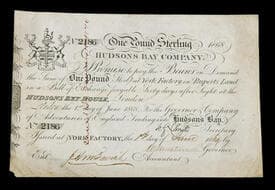 Nº 2186 One Pound Sterling 1868
HUDSONS BAY COMPANY.
I Promise to pay the Bearer on Demand
the Sum of One Pound Sterling at York Factory in Ruperts Land
in a Bill of Exchange payable Sixty days after Sight at the
HUDSONS BAY HOUSE, London
the 1st day of June 1868. For the Governor & Company
of Adventurers of England Trading into Hudsons Bay
Nº 2186
Secretary
Issued at YORK FACTORY, the
Governor
Entd Accountant